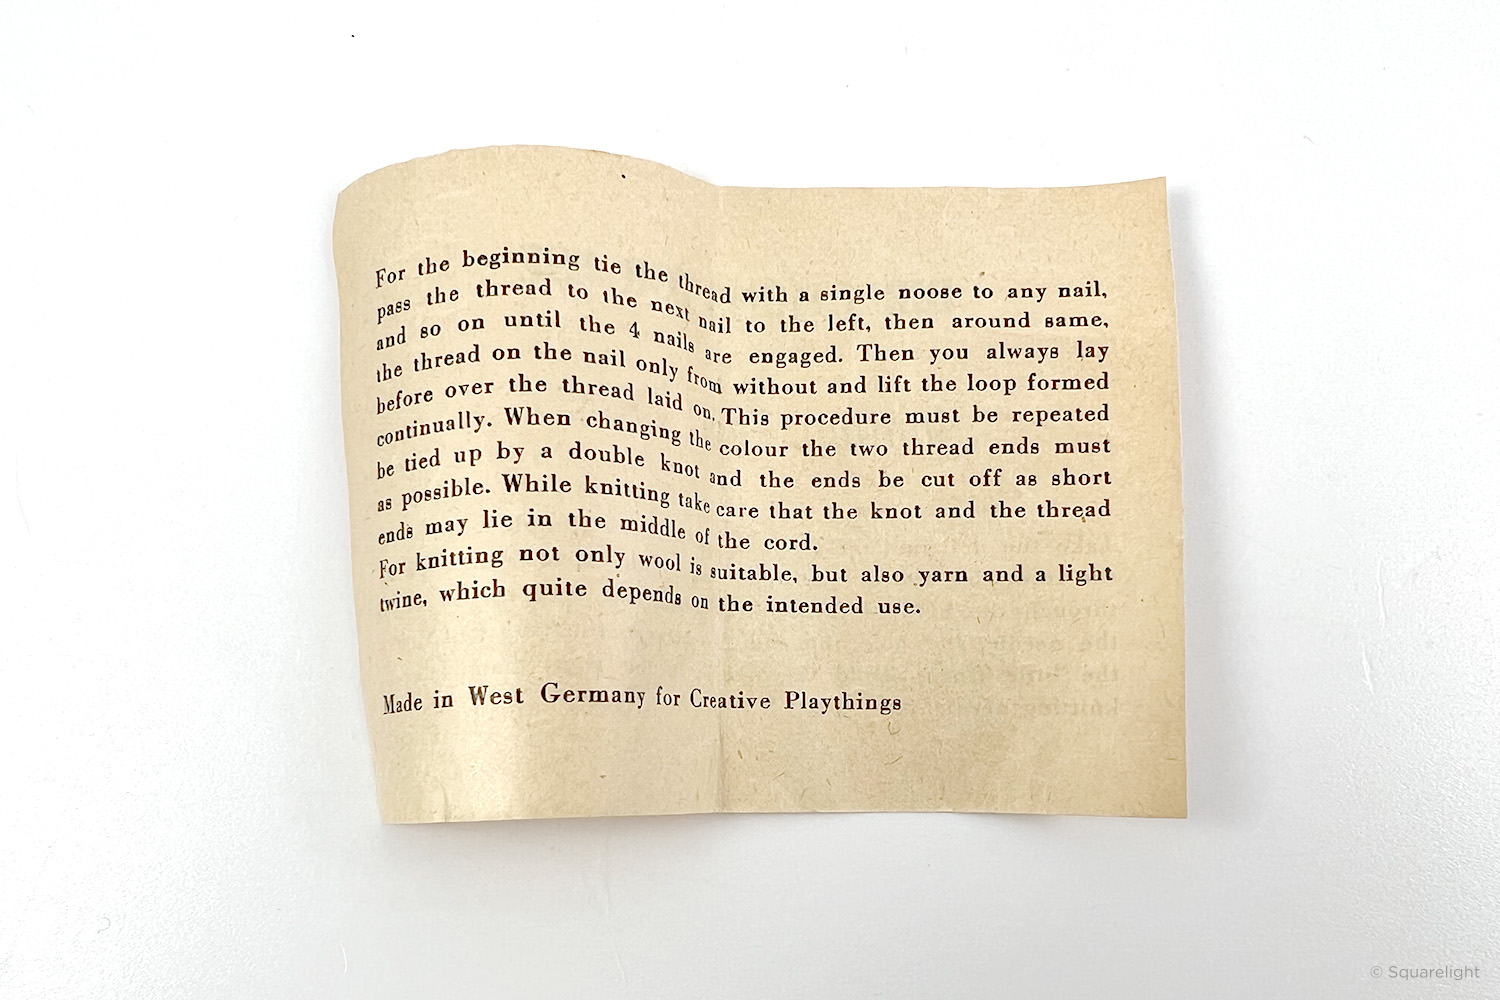 For the beginning tie the thread with a single noose to any nail,
pass the thread to the next nail to the left, then around same,
and so on until the 4 nails are engaged. Then you always lay
the thread on the nail only from without and lift the loop formed
before over the thread laid on. This procedure must be repeated
continually. When changing the colour the two thread ends must
be tied up by a double knot and the ends be cut off as short
as possible. While knitting take care that the knot and the thread
ends may lie in the middle of the cord.
For knitting not only wool is suitable, but also yarn and a light
twine, which quite depends on the intended use.
Made in West Germany for Creative Playthings
© Squarelight